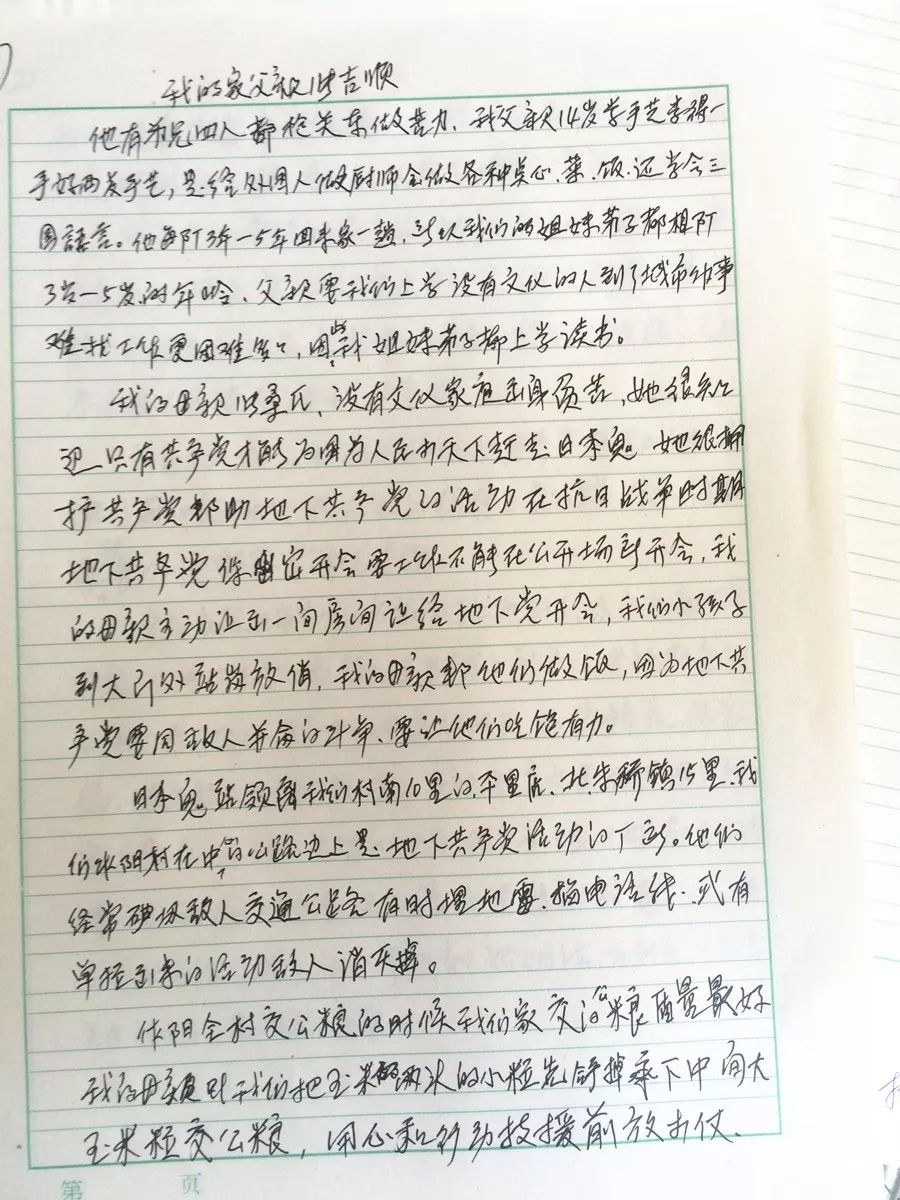 我的家父亲 吉顺
他有弟兄四人都抢关东做苦力、我父亲14岁学手艺学得一
手好两发手艺,是给外国人做厨师会做各种点心、菜、饭、还学会三
国語言。他每阡3年一5年回来家一趟,所以我们的姐妹弟子都相阡
3岁一5岁的年令、父亲要我们上学没有文化的人到了城市行事
难找工作更困难多了,因此我姐妹弟子都上学读书。
我的母亲 桑氏、没有文化家庭出身贫苦,她很知
迎只有共产党才能为国为人民打天下赶走日本鬼。她很拥
护共产党帮助地下共产党的活动在抗日战争时期
地下共产党保密开会要工作不能在公开场所开会,我
的母亲主动让出一间房间让给地下党开会,我们小孩子
到大门外站岗放俏,我的母亲帮他们做饭,因为地下共
产党要同敌人拼命的斗争、要让他们吃饱有力。
日本鬼站领离我们村南10里的平里店、北朱桥镇15里、我
们 阳村在中间的公路边上是地下共产党活动的 。他们
经常破坏敌人交通公路有时埋地雷、掐电话线、或有
单独出来的活动敌人消灭掉。
阳全村交公粮的时候我们家交公粮质量最好
我的母亲叫我们把玉米的两头的小粒先 掉乘下中间大
玉米粒交公粮,用心和行动技援前放打仗、
第 页